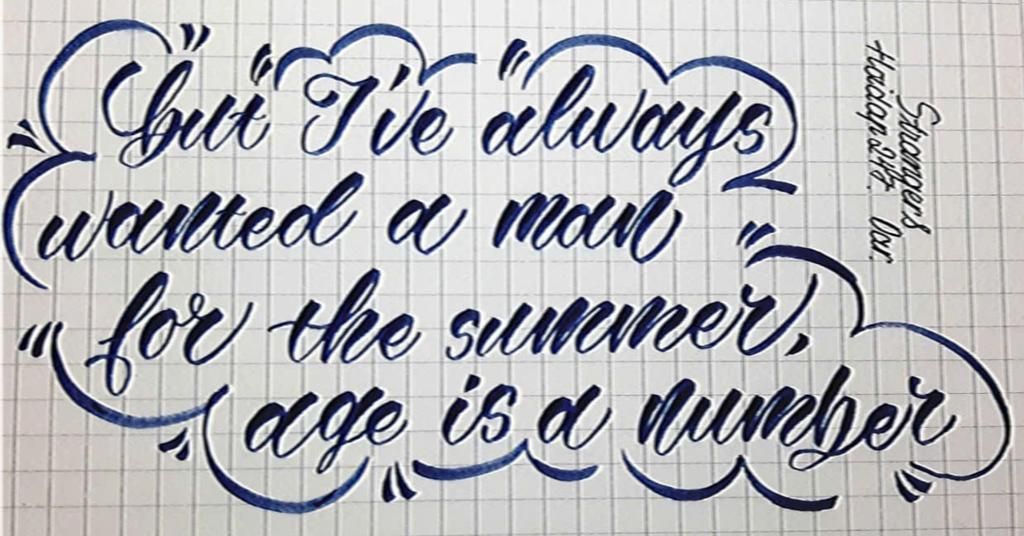 but I've always
wanted a man
for the summer,
age is a number
Strangers